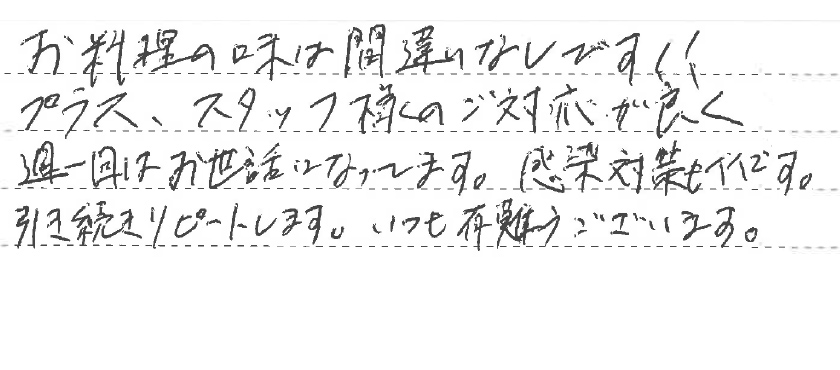 お料理の味は間違いなしです!!
プラス、スタッフ様のご対応が良く
週一回はお世話になってます。感染対策もイイです。
引き続きリピートします。いつも有難うございます。